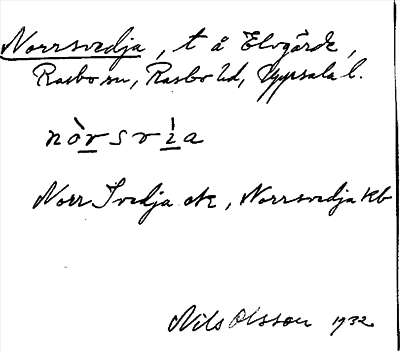 Norrsvedja, t å Elvgärde,
Rasbo sn, Rasbo hd, Uppsala l.
nòrsvìa
Norr Svedja ek, Norrsvedja kb
Nils Olsson 1932